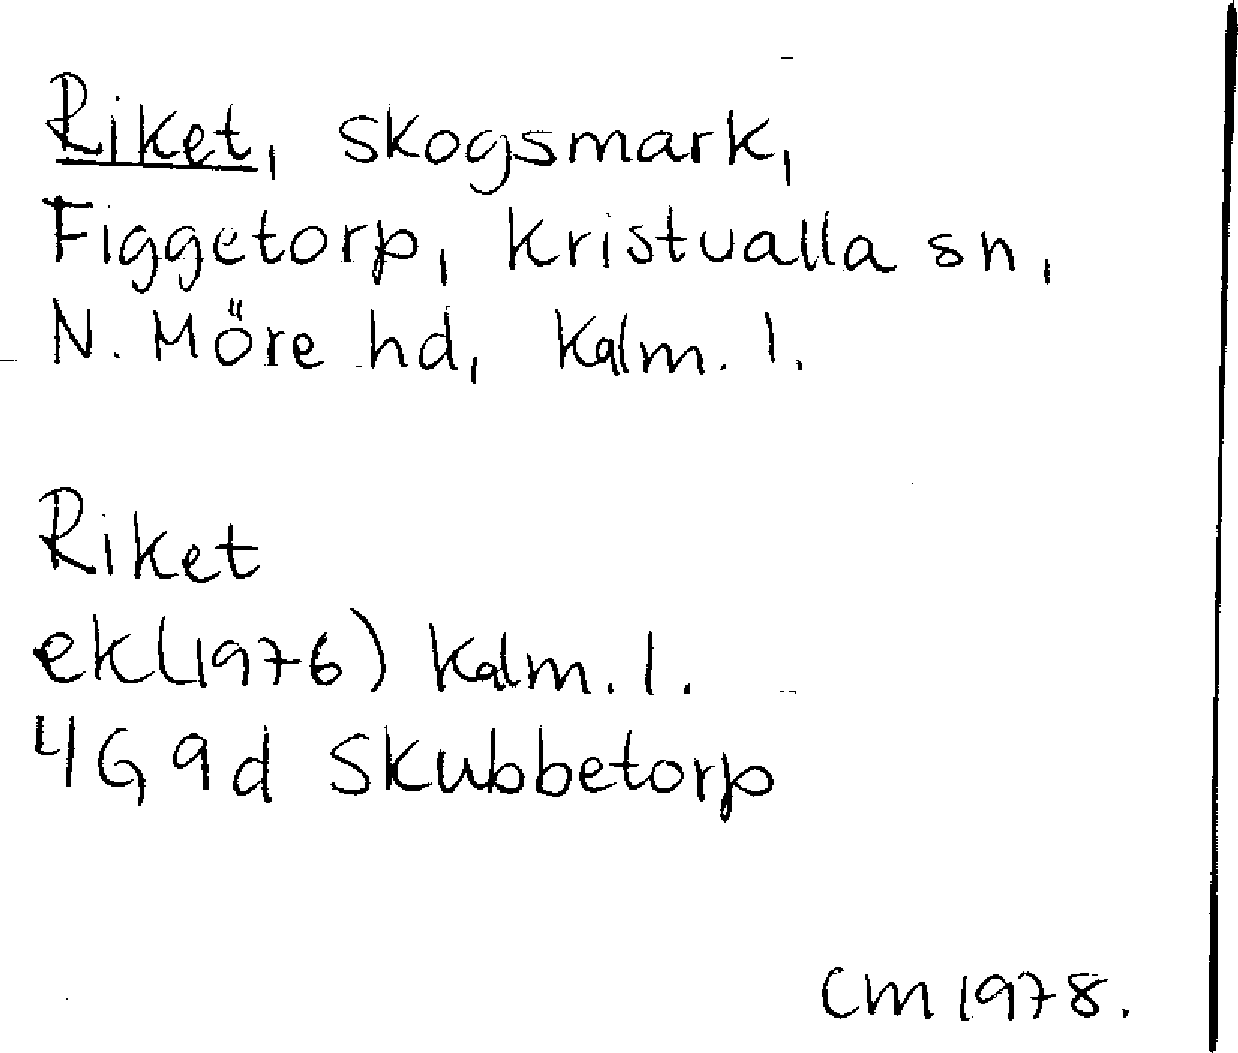 Riket, skogsmark,
Figgetorp, Kristvalla sn,
N. Möre hd, Kalm. l.
Riket
ek (1976) Kalm. l.
4G 9d Skubbetorp
CM 1978.